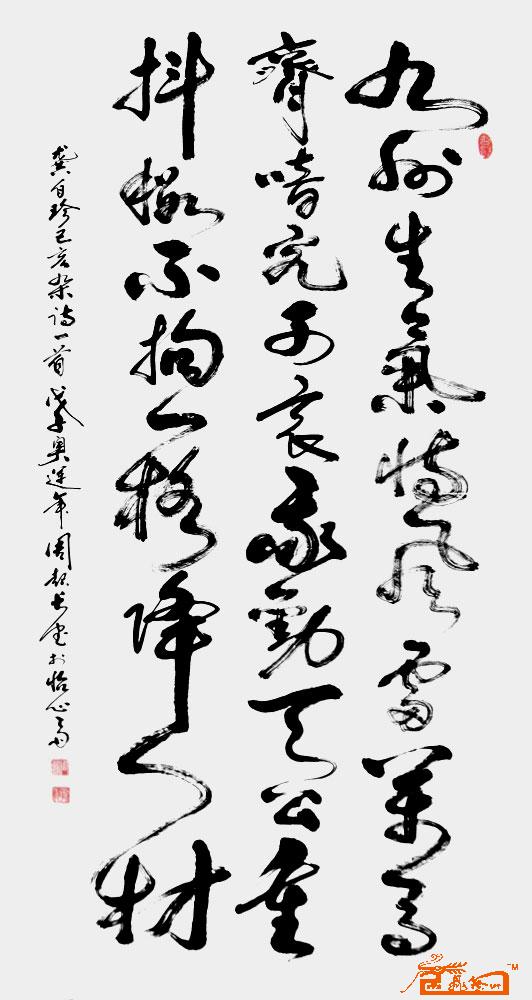 九州生氣恃風雷萬馬
齊喑究可哀我勸天公重
抖擻不拘一格降人材
龔自珍己亥杂诗一首 戊子奥运年 周书於怡心斋